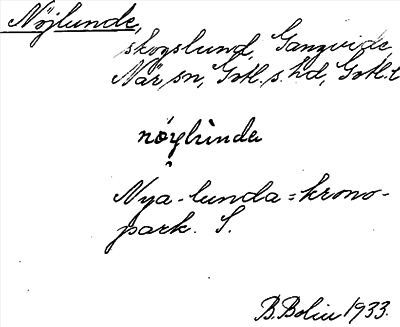 Nöjlunde,
skogslund, Ganzvide,
När sn, Gotl. s. hd, Gotl. l
nöylùnda
Nya-lunda = krono-
park. S.
B. Bolin 1933.